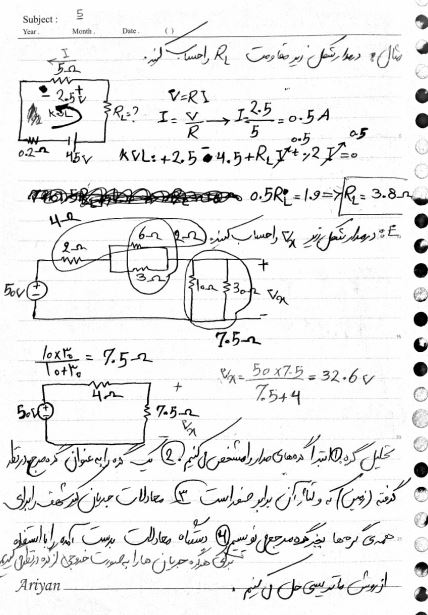 Subject : 5
Year . Month . Date . ( )
مثال: در مدار شکل زیر مقاومت RL را حساب کنید.
I
5Ω
- 2.5v +
KVL
RL=?
0.2Ω 4.5V
V=RI
I=V/R → I=2.5/5=0.5 A
KVL: +2.5 - 4.5 + RL I + 0.2 I = 0
0.5 0.5
0.5RL=1.9 => RL = 3.8Ω
در مدار شکل زیر Vx را حساب کنید:
4Ω
2Ω 6Ω 2Ω
3Ω
50v
10Ω 30Ω
+ Vx -
7.5Ω
(10×30)/(10+30) = 7.5Ω
Vx = (50×7.5)/(7.5+4) = 32.6 v
50v 4Ω 7.5Ω
+ Vx
تحلیل گره ① ابتدا گره‌های مدار را مشخص می‌کنیم. ② یک گره را به عنوان گره مرجع در نظر
گرفته (زمین) که ولتاژ آن برابر صفر است ③ معادلات جریان کیرشهف را برای
همه‌ی گره‌ها بجز گره مرجع می‌نویسیم ④ دستگاه معادلات بدست آمده را با استفاده
برای هر گره جریان ها را به صورت خروجی از گره در نظر می‌گیریم
از روش ماتریسی حل می‌کنیم.
Ariyan